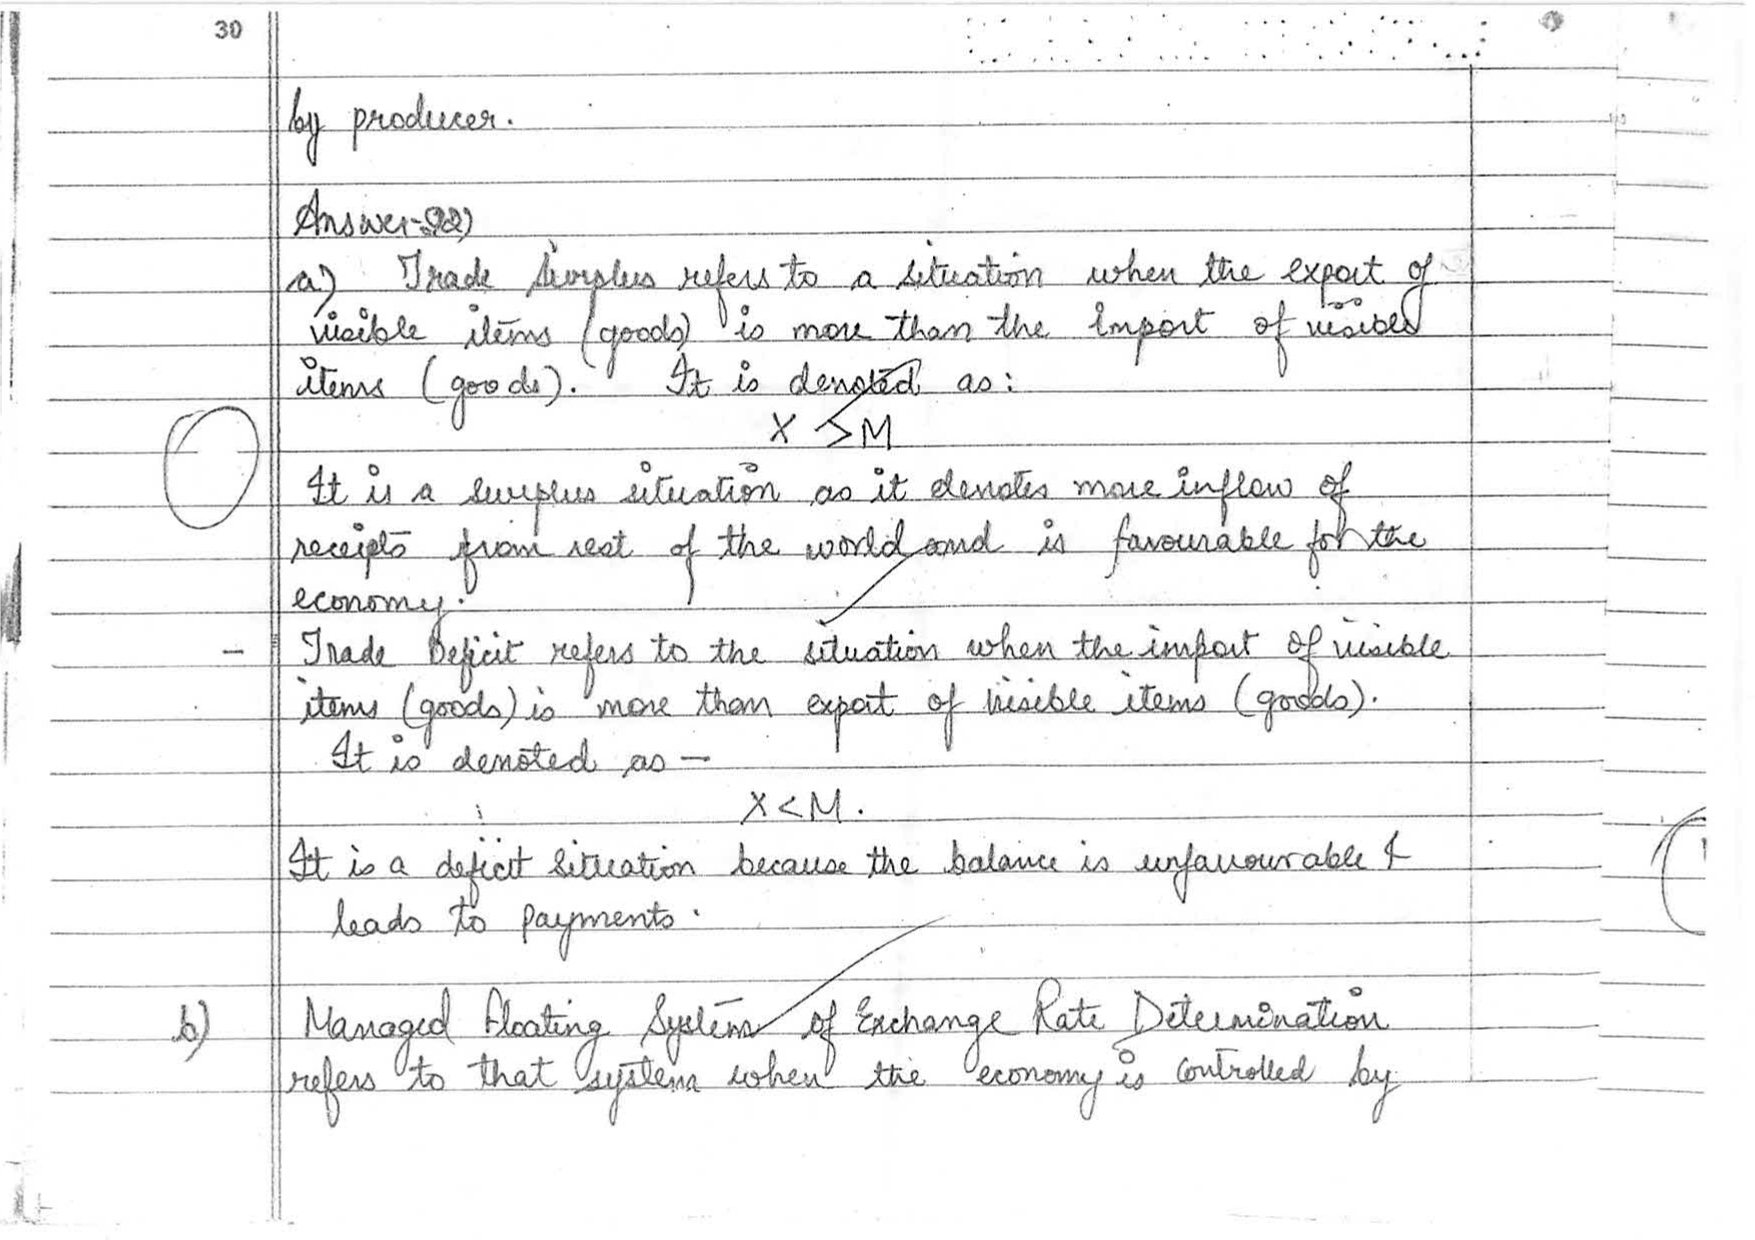 30
by producer.
Answer-22)
a) Trade Surplus refers to a situation when the export of
visible items (goods) is more than the import of visible
items (goods). It is denoted as:
X > M
It is a surplus situation as it denotes more inflow of
receipts from rest of the world and is favourable for the
economy.
- Trade Deficit refers to the situation when the import of visible
items (goods) is more than export of visible items (goods).
It is denoted as -
X < M.
It is a deficit situation because the balance is unfavourable &
leads to payments.
b) Managed Floating System of Exchange Rate Determination
refers to that system when the economy is controlled by